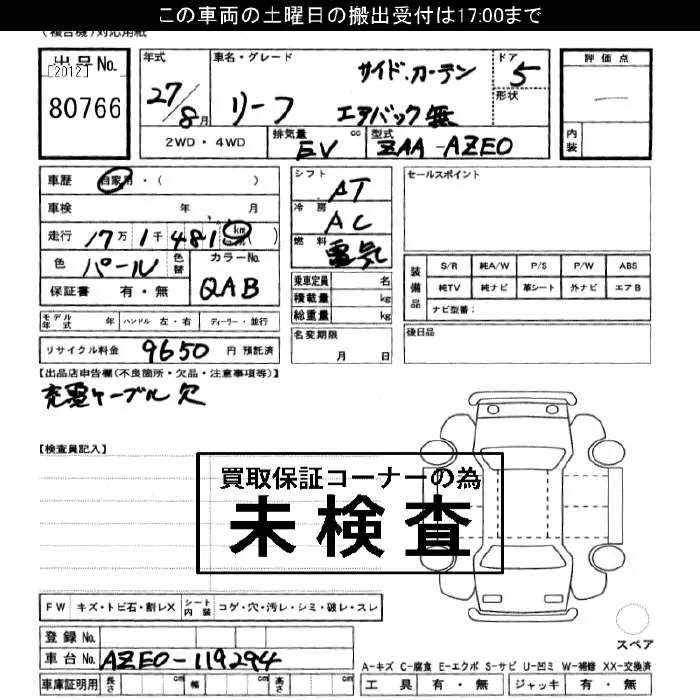 この車両の土曜日の搬出受付は17:00まで
(複合機)対応用紙
出品No.
[2012]
80766
年式
27/8月
車名・グレード
リーフ
サイド.カーテン
エアバック無
ドア
5
形状
評価点
―
内装
2WD・4WD
排気量
EV
cc
型式
ZAA-AZE0
車歴 自家用・( )
車検 年 月
走行 17万1千481km( )
色 パール
色替
カラーNo.
QAB
保証書 有・無
シフト
AT
冷房
AC
燃料
電気
乗車定員 名
積載量 kg
総重量 kg
セールスポイント
装備品
S/R 純A/W P/S P/W ABS
純TV 純ナビ 革シート 外ナビ エアB
ナビ型番:
モデル年式 年 ハンドル 左・右 ディーラー・並行
リサイクル料金 9650 円 預託済
名変期限
月 日
後日品
【出品店申告欄(不良箇所・欠品・注意事項等)】
充電ケーブル欠
【検査員記入】
買取保証コーナーの為
未検査
FW キズ・トビ石・割レX シート内装 コゲ・穴・汚レ・シミ・破レ・スレ
登録No.
車台No. AZE0-119294
車庫証明用 長さ cm 幅 cm 高さ cm
スペア
A-キズ C-腐食 E-エクボ S-サビ U-凹ミ W-補修 XX-交換済
工具 有・無 ジャッキ 有・無